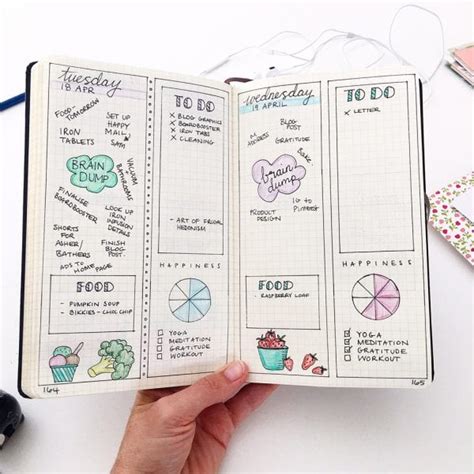 tuesday
18 APR
FOOD-
TOMORROW
SET UP
HAPPY
MAIL!
SAM
IRON
TABLETS
VACUUM
+
BATHROOMS
BRAIN
DUMP
FINALISE
BOARDBOOSTER
LOOK UP
IRON
INFUSION
DETAILS
SHORTS
FOR
ASHER/
BATHERS
FINISH
BLOG
POST
ADS TO HOME PAGE
FOOD
- PUMPKIN SOUP
- BIKKIES - CHOC CHIP
164
TO DO
X BLOG GRAPHICS
X BOARDBOOSTER
X IRON TABS
X CLEANING
- ART OF FRUGAL
HEDONISM
HAPPINESS
YOGA
MEDITATION
GRATITUDE
WORKOUT
wednesday
19 APRIL
ADDRESS
BLOG
POST
GRATITUDE
Bake
brain
dump
PRODUCT
DESIGN
IG to
PINTEREST
FOOD
- RASPBERRY LOAF
TO DO
X LETTER
HAPPINESS
YOGA
MEDITATION
GRATITUDE
WORKOUT
165